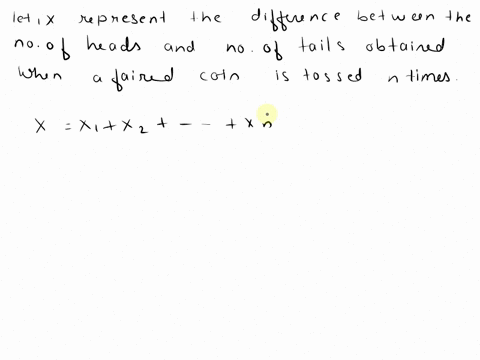 let, X represent the difference between the
no. of heads and no. of tails obtained
when a faired coin is tossed n times.
X = x₁ + x₂ + - - + xn